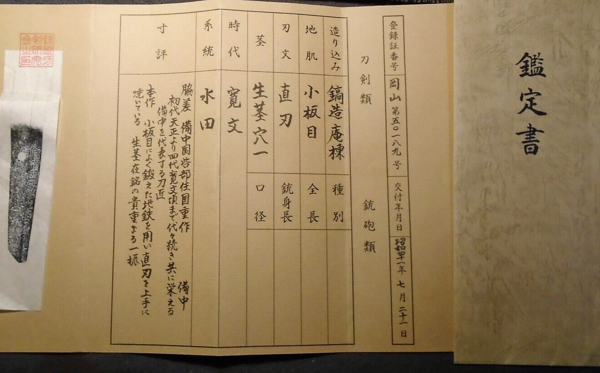 鑑定書
登録証番号 岡山 第五〇一八九号 交付年月日 昭和四十一年 七月 二十一日
刀剣類 銃砲類
造り込み 鎬造庵棟 種別
地肌 小板目 全長
刃文 直刃 銃身長
茎 生茎穴一 口径
時代 寛文
系統 水田
寸評 脇差 備中国呰部住国重作 備中
初代天正より四代寛文頃まで代々続き共に栄える
備中を代表する刀匠
本作 小板目によく鍛えた地鉄を用い直刃を上手に
焼いている 生茎在銘の貴重なる一振